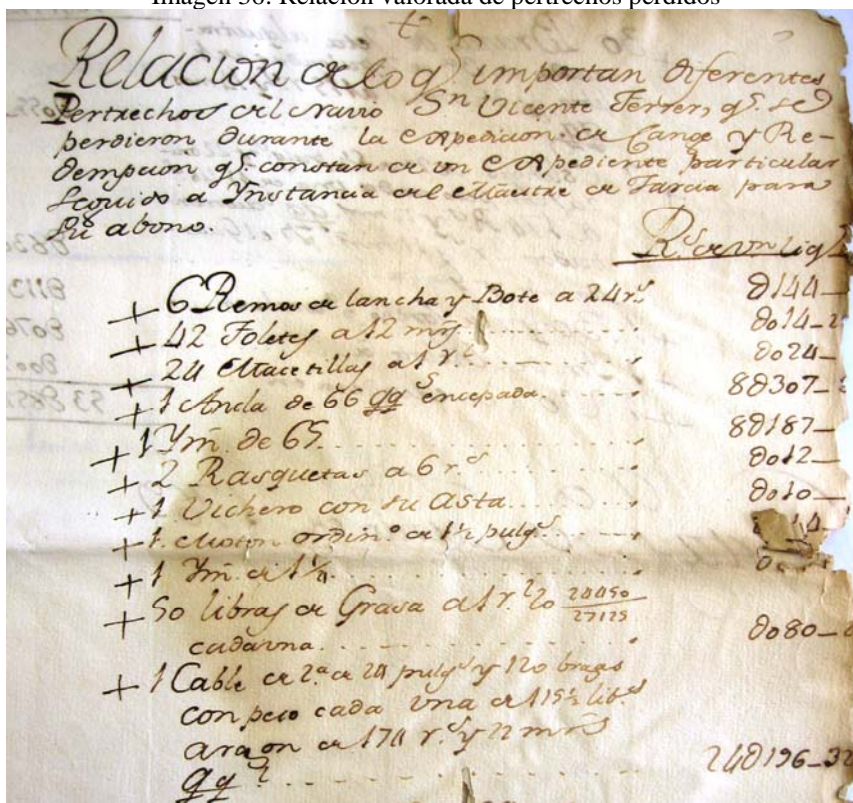 Imagen 36. Relación valorada de pertrechos perdidos
Relacion de lo q.e importan diferentes
Pertrechos del navio S.n Vicente Ferrer, q.e se
perdieron durante la expedicion de Cange y Re-
dempcion q.e constan de un expediente particular
seguido a Ynstancia del Maestre de Jarcia para
su abono.
R.s de von liq.
+ 6 Remos de lancha y Bote a 24 r.s 0144
+ 42 Foletes a 12 mrs 0014
+ 24 Macetillas a 1 r.l 0024
+ 1 Ancla de 66 qq.s encepada 80307
+ 1 Ym. de 65 80187
+ 2 Rasquetas a 6 r.s 0012
+ 1 Vichero con su asta 0010
+ 1 Moton ordin.o de 1½ pulg.s
+ 1 Ym. de 1¼
+ 50 libras de Grasa a 1 r.l 20 20450/27125
cada una 0080
+ 1 Cable de 2.a de 24 pulg.s y 120 brazas
con peso cada una de 115½ lib.s
aragon de 174 r.s y 22 mrs
qq.l 240196-32